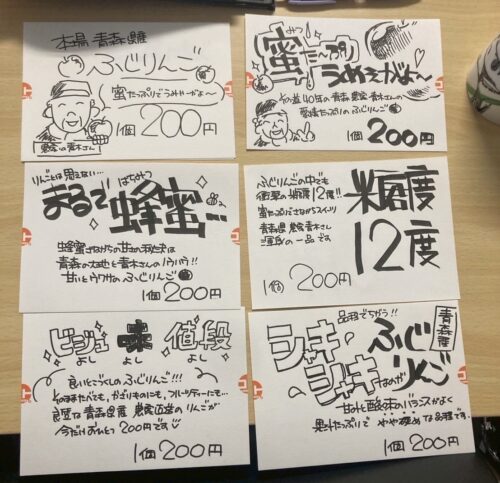 本場 青森県産
ふじりんご
蜜たっぷりでうめぇがよ〜
農家の青木さん
1個200円
みつ
蜜たっぷり
うめぇがよ〜
その道40年の青森農家青木さんの
愛情たっぷりのふじりんご
1個200円
りんごとは思えない…
はちみつ
まるで蜂蜜…
蜂蜜さながらの甘さの秘密は
青森の大地と青木さんのノウハウ!!
甘いとウワサのふじりんご
1個200円
ふじりんごの中でも
衝撃の糖度12度!!
蜜たっぷりでさながらスイーツ
青森県農家青木さん
渾身の一品です
糖度
12度
1個200円
ビジュ 味 値段
よし よし よし
良いとこづくしのふじりんご!!!
そのまま食べても、かざりものにも、フルーツティーにも…
良質な青森県産 農家直産のりんごが
今だけおひとつ200円です
1個200円
品種でちがう!!
青森産
シャキシャキなのが
ふじりんご
甘味と酸味のバランスがよく
果汁たっぷりで やや硬めな品種です。
1個200円